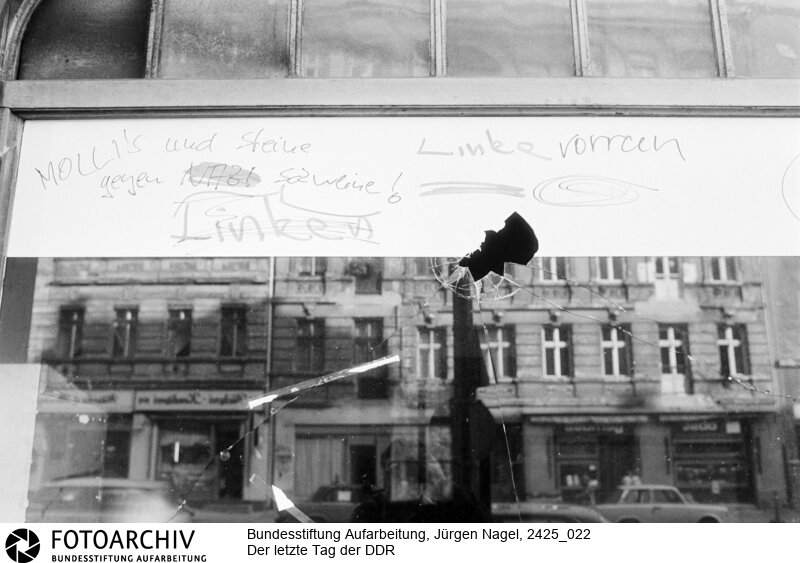 MOLLI'S und Steine
gegen NAZI Schweine!
Linken
Linke vorran
FOTOARCHIV
BUNDESSTIFTUNG AUFARBEITUNG
Bundesstiftung Aufarbeitung, Jürgen Nagel, 2425_022
Der letzte Tag der DDR